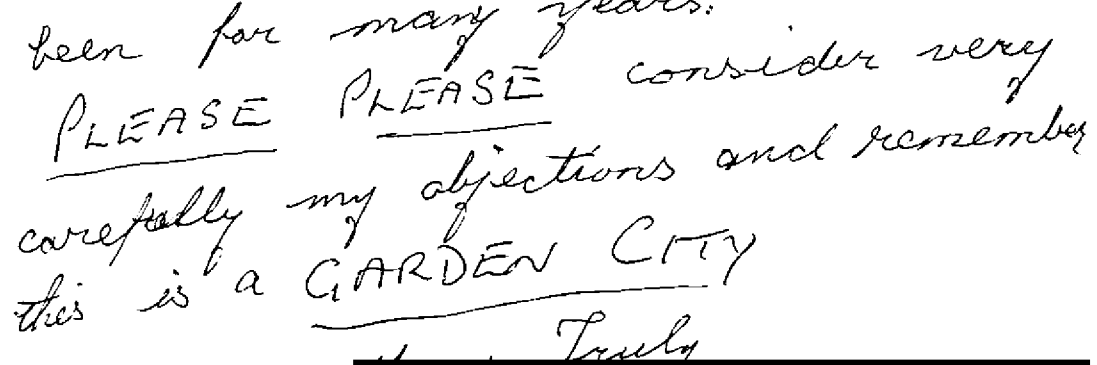 been for many years.
PLEASE PLEASE consider very
carefully my objections and remember
this is a GARDEN CITY
Truly